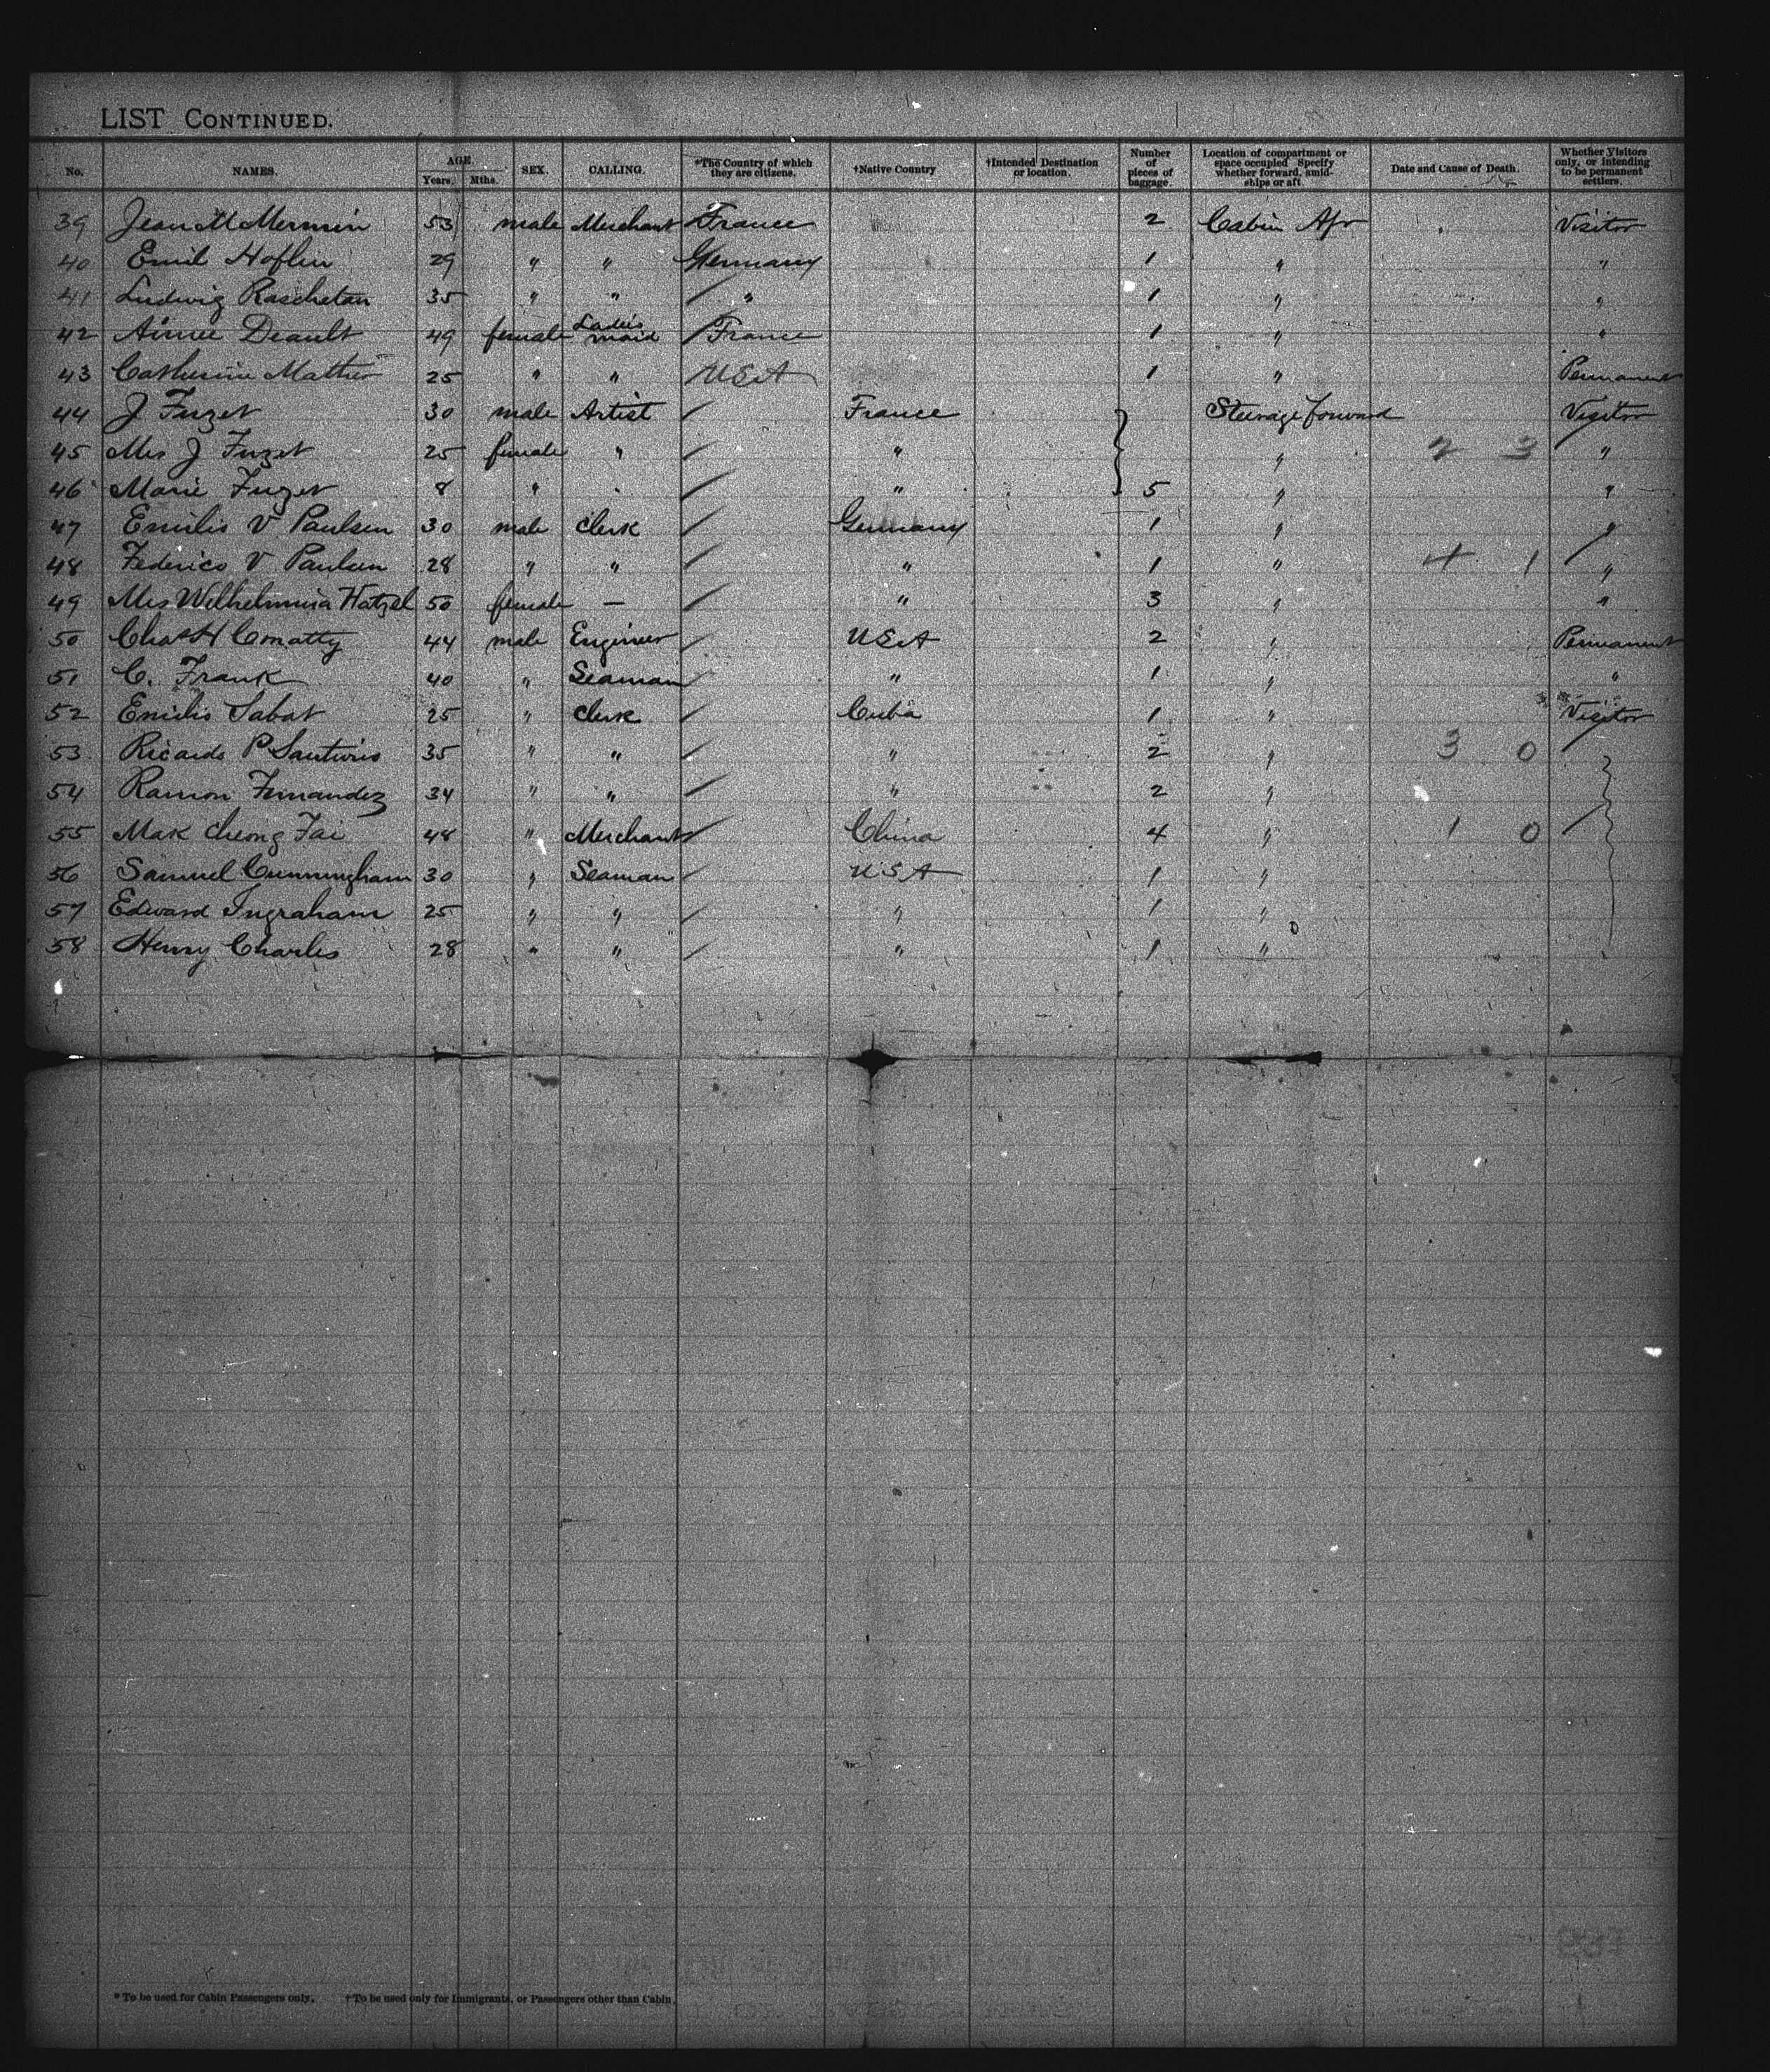 LIST CONTINUED.
No. NAMES. AGE. Years. Mths. SEX. CALLING. *The Country of which they are citizens. †Native Country †Intended Destination or location. Number of pieces of baggage. Location of compartment or space occupied Specify whether forward, amid-ships or aft Date and Cause of Death. Whether Visitors only, or intending to be permanent settlers.
39 Jean M Mermin 53 male Merchant France 2 Cabin Afr Visitor
40 Emil Hoflin 29 " " Germany 1 " "
41 Ludwig Raschetan 35 " " " 1 " "
42 Aimee Deault 49 female Ladies maid France 1 " "
43 Catherine Mather 25 " " USA 1 " Permanent
44 J Fuzet 30 male Artist France Steerage forward Visitor
45 Mrs J Fuzet 25 female " " " 2 3 "
46 Marie Fuzet 8 " " 5 " "
47 Emilio V Paulsen 30 male Clerk Germany 1 " "
48 Federico V Paulsen 28 " " " 1 " 4 1 "
49 Mrs Wilhelmina Hatzel 50 female — " 3 " "
50 Chas H Conatty 44 male Engineer USA 2 " Permanent
51 C. Frank 40 " Seaman " 1 " "
52 Emilio Sabat 25 " Clerk Cuba 1 " Visitor
53 Ricardo P Santurio 35 " " " 2 " 3 0
54 Ramon Fernandez 34 " " " 2 "
55 Mak Cheong Fai 48 " Merchant China 4 " 1 0
56 Samuel Cunningham 30 " Seaman USA 1 "
57 Edward Ingraham 25 " " " 1 "
58 Henry Charles 28 " " " 1 "
* To be used for Cabin Passengers only. † To be used only for Immigrants, or Passengers other than Cabin.